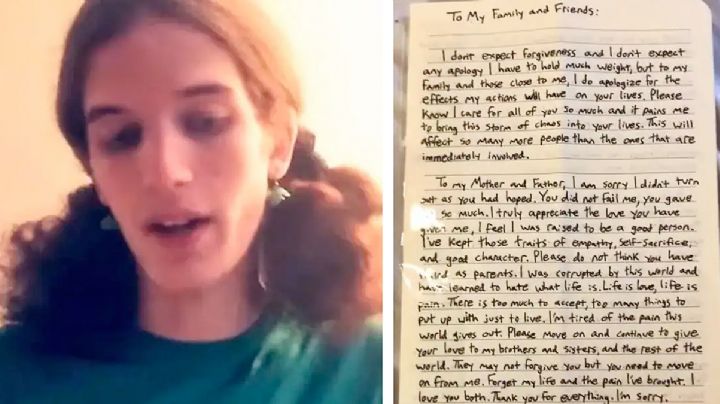 To My Family and Friends:
I dont expect forgiveness and I don't expect
any apology I have to hold much weight, but to my
family and those close to me, I do apologize for the
effects my actions will have on your lives. Please
Know I care for all of you so much and it pains me
to bring this storm of chaos into your lives. This will
affect so many more people than the ones that are
immediately involved.
To my Mother and Father, I am sorry I didn't turn
out as you had hoped. You did not fail me, you gave
so much. I truly appreciate the love you have
given me, I feel I was raised to be a good person.
I've kept those traits of empathy, self-sacrifice,
and good character. Please do not think you have
failed as parents. I was corrupted by this world and
have learned to hate what life is. Life is love, life is
pain. There is too much to accept, too many things to
put up with just to live. I'm tired of the pain this
world gives out. Please move on and continue to give
your love to my brothers and sisters, and the rest of the
world. They may not forgive you but you need to move
on from me. Forget my life and the pain I've brought. I
love you both. Thank you for everything. I'm sorry.